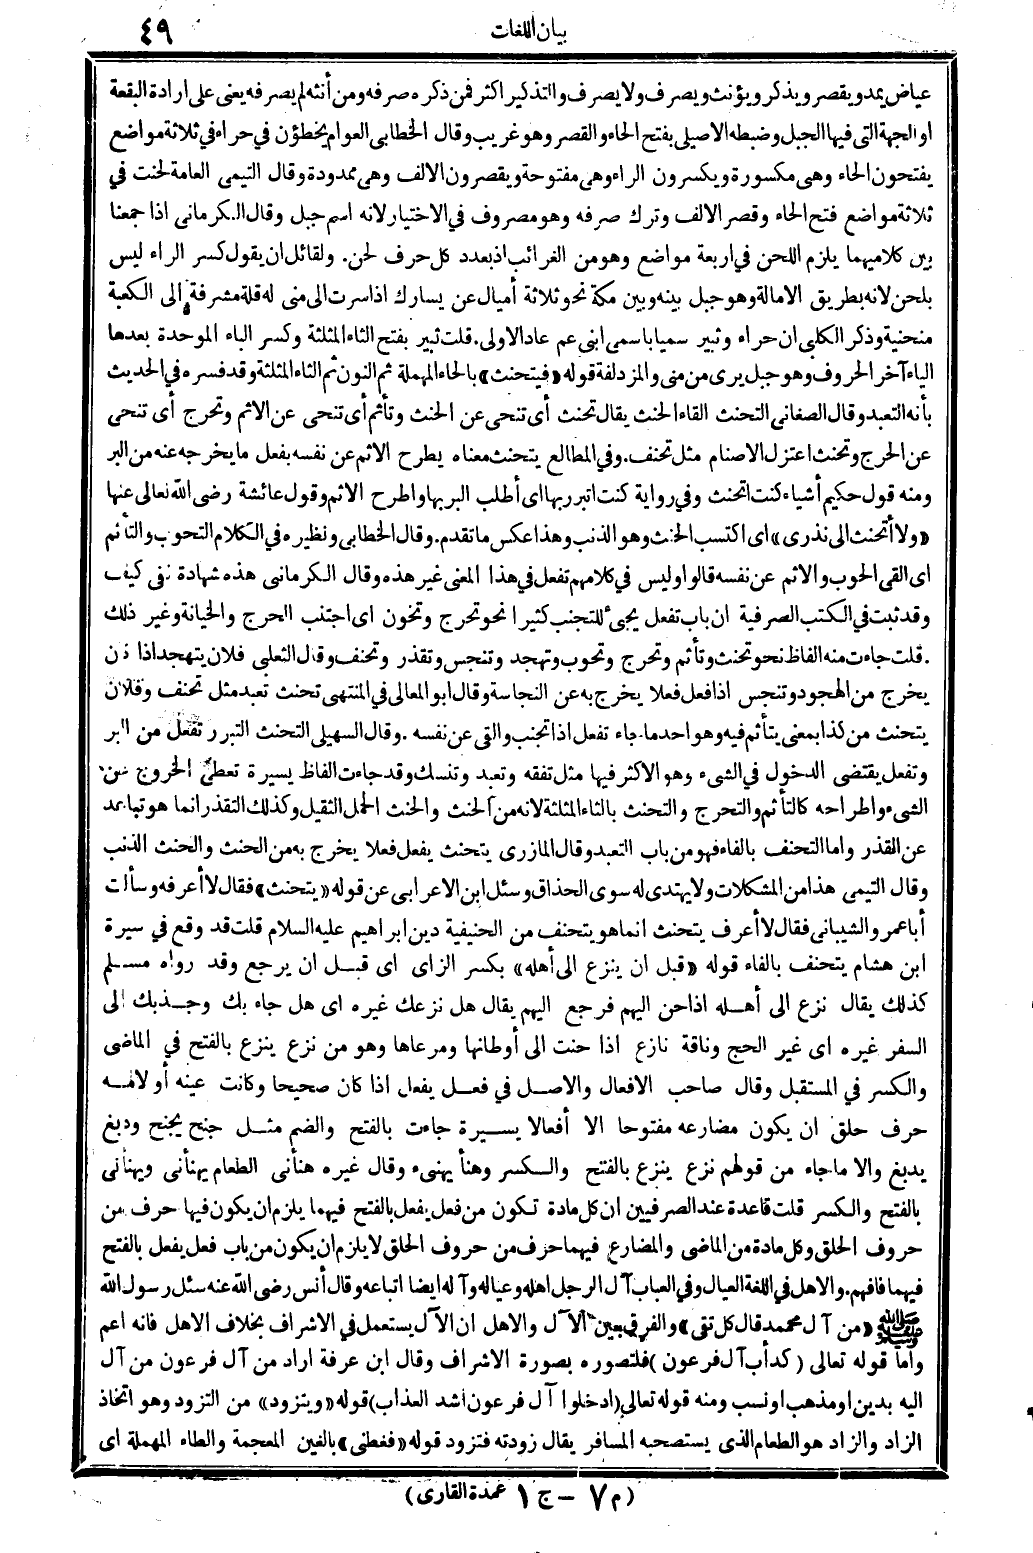 بيان اللغات
٤٩
عياض يمد ويقصر ويذكر ويؤنث ويصرف ولا يصرف والتذكير اكثر فمن ذكره صرفه ومن أنثه لم يصرفه يعنى على ارادة البقعة
او الجهة التى فيها الجبل وضبطه الاصيلى بفتح الحاء والقصر وهو غريب وقال الخطابى العوام يخطؤن فى حراء فى ثلاثة مواضع
يفتحون الحاء وهى مكسورة ويكسرون الراء وهى مفتوحة ويقصرون الالف وهى ممدودة وقال التيمى العامة لحنت فى
ثلاثة مواضع فتح الحاء وقصر الالف وترك صرفه وهو مصروف فى الاختيار لانه اسم جبل وقال الكرمانى اذا جمعنا
بين كلاميهما يلزم اللحن فى اربعة مواضع وهو من الغرائب اذ بعدد كل حرف لحن. ولقائل ان يقول كسر الراء ليس
بلحن لانه بطريق الامالة وهو جبل بينه وبين مكة نحو ثلاثة أميال عن يسارك اذا سرت الى منى له قلة مشرفة الى الكعبة
منحنية وذكر الكلبى ان حراء وثبير سميا باسمى ابنى عم عاد الاولى. قلت ثبير بفتح الثاء المثلثة وكسر الباء الموحدة بعدها
الياء آخر الحروف وهو جبل يرى من منى والمزدلفة قوله «فيتحنث» بالحاء المهملة ثم النون ثم الثاء المثلثة وقد فسره فى الحديث
بأنه التعبد وقال الصغانى التحنث القاء الحنث يقال تحنث أى تنحى عن الحنث وتأثم أى تنحى عن الاثم وتحرج أى تنحى
عن الحرج وتحنث اعتزل الاصنام مثل تحنف. وفى المطالع يتحنث معناه يطرح الاثم عن نفسه بفعل ما يخرجه عنه من البر
ومنه قول حكيم أشياء كنت اتحنث وفى رواية كنت اتبرر بها اى أطلب البر بها واطرح الاثم وقول عائشة رضى الله تعالى عنها
«ولا أتحنث الى نذرى» اى اكتسب الحنث وهو الذنب وهذا عكس ما تقدم. وقال الخطابى ونظيره فى الكلام التحوب والتأثم
اى القى الحوب والاثم عن نفسه قالوا وليس فى كلامهم تفعل فى هذا المعنى غير هذه وقال الكرمانى هذه شهادة نفى كيف
وقد ثبت فى الكتب الصرفية ان باب تفعل يجىء للتجنب كثيرا نحو تحرج وتخون اى اجتنب الحرج والخيانة وغير ذلك
.قلت جاءت منه الفاظ نحو تحنث وتأثم وتحرج وتحوب وتهجد وتنجس وتقذر وتحنف وقال الثعلبى فلان يتهجد اذا كان
يخرج من الهجود وتنجس اذا فعل فعلا يخرج به عن النجاسة وقال ابو المعالى فى المنتهى تحنث تعبد مثل تحنف وفلان
يتحنث من كذا بمعنى يتأثم فيه وهو احد ما جاء تفعل اذا تجنب والقى عن نفسه .وقال السهيلى التحنث التبرر تفعل من البر
وتفعل يقتضى الدخول فى الشىء وهو الاكثر فيها مثل تفقه وتعبد وتنسك وقد جاءت الفاظ يسيرة تعطى الخروج عن
الشىء واطراحه كالتأثم والتحرج والتحنث بالثاء المثلثة لانه من الحنث والحنث الحمل الثقيل وكذلك التقذر انما هو تباعد
عن القذر واما التحنف بالفاء فهو من باب التعبد وقال المازرى يتحنث يفعل فعلا يخرج به من الحنث والحنث الذنب
وقال التيمى هذا من المشكلات ولا يهتدى له سوى الحذاق وسئل ابن الاعرابى عن قوله «يتحنث» فقال لا أعرفه وسألت
أبا عمرو الشيبانى فقال لا أعرف يتحنث انما هو يتحنف من الحنيفية دين ابراهيم عليه السلام قلت قد وقع فى سيرة
ابن هشام يتحنف بالفاء قوله «قبل ان ينزع الى أهله» بكسر الزاى اى قبل ان يرجع وقد رواه مسلم
كذلك يقال نزع الى أهله اذا حن اليهم فرجع اليهم يقال هل نزعك غيره اى هل جاء بك وجذبك الى
السفر غيره اى غير الحج وناقة نازع اذا حنت الى أوطانها ومرعاها وهو من نزع ينزع بالفتح فى الماضى
والكسر فى المستقبل وقال صاحب الافعال والاصل فى فعل يفعل اذا كان صحيحا وكانت عينه أو لامه
حرف حلق ان يكون مضارعه مفتوحا الا أفعالا يسيرة جاءت بالفتح والضم مثل جنح يجنح ودبغ
يدبغ والا ما جاء من قولهم نزع ينزع بالفتح والكسر وهنأ يهنىء وقال غيره هنأنى الطعام يهنأنى ويهنأنى
بالفتح والكسر قلت قاعدة عند الصرفيين ان كل مادة تكون من فعل يفعل بالفتح فيهما يلزم ان يكون فيها حرف من
حروف الحلق وكل مادة من الماضى والمضارع فيهما حرف من حروف الحلق لا يلزم ان يكون من باب فعل يفعل بالفتح
فيهما فافهم. والاهل فى اللغة العيال وفى العباب آل الرجل اهله وعياله وآله ايضا اتباعه وقال أنس رضى الله عنه سئل رسول الله
ﷺ «من آل محمد قال كل تقى» والفرق بين الآل والاهل ان الآل يستعمل فى الاشراف بخلاف الاهل فانه اعم
واما قوله تعالى (كدأب آل فرعون) فلتصوره بصورة الاشراف وقال ابن عرفة اراد من آل فرعون من آل
اليه بدين او مذهب او نسب ومنه قوله تعالى (ادخلوا آل فرعون اشد العذاب) قوله «ويتزود» من التزود وهو اتخاذ
الزاد والزاد هو الطعام الذى يستصحبه المسافر يقال زودته فتزود قوله «فغطنى» بالغين المعجمة والطاء المهملة اى
(م ٧ – ج ١ عمدة القارى)